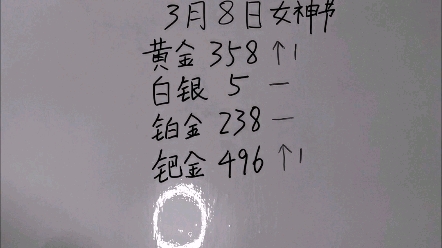 3月8日女神节
黄金 358 ↑1
白银 5 一
铂金 238 一
钯金 496 ↑1